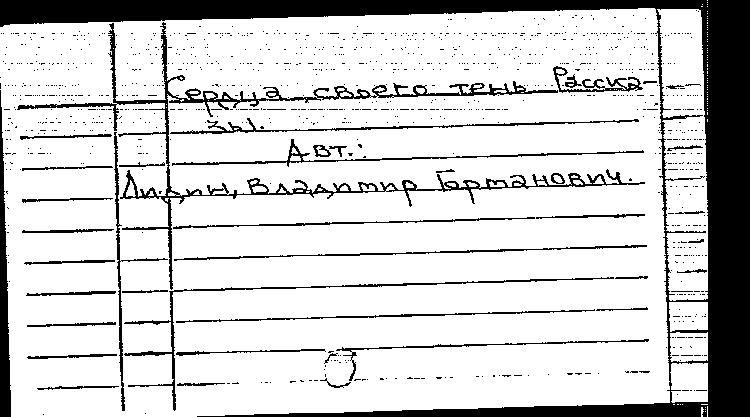 Сердца своего тень Расска-
зы.
Авт.:
Лидин, Владимир Германович.